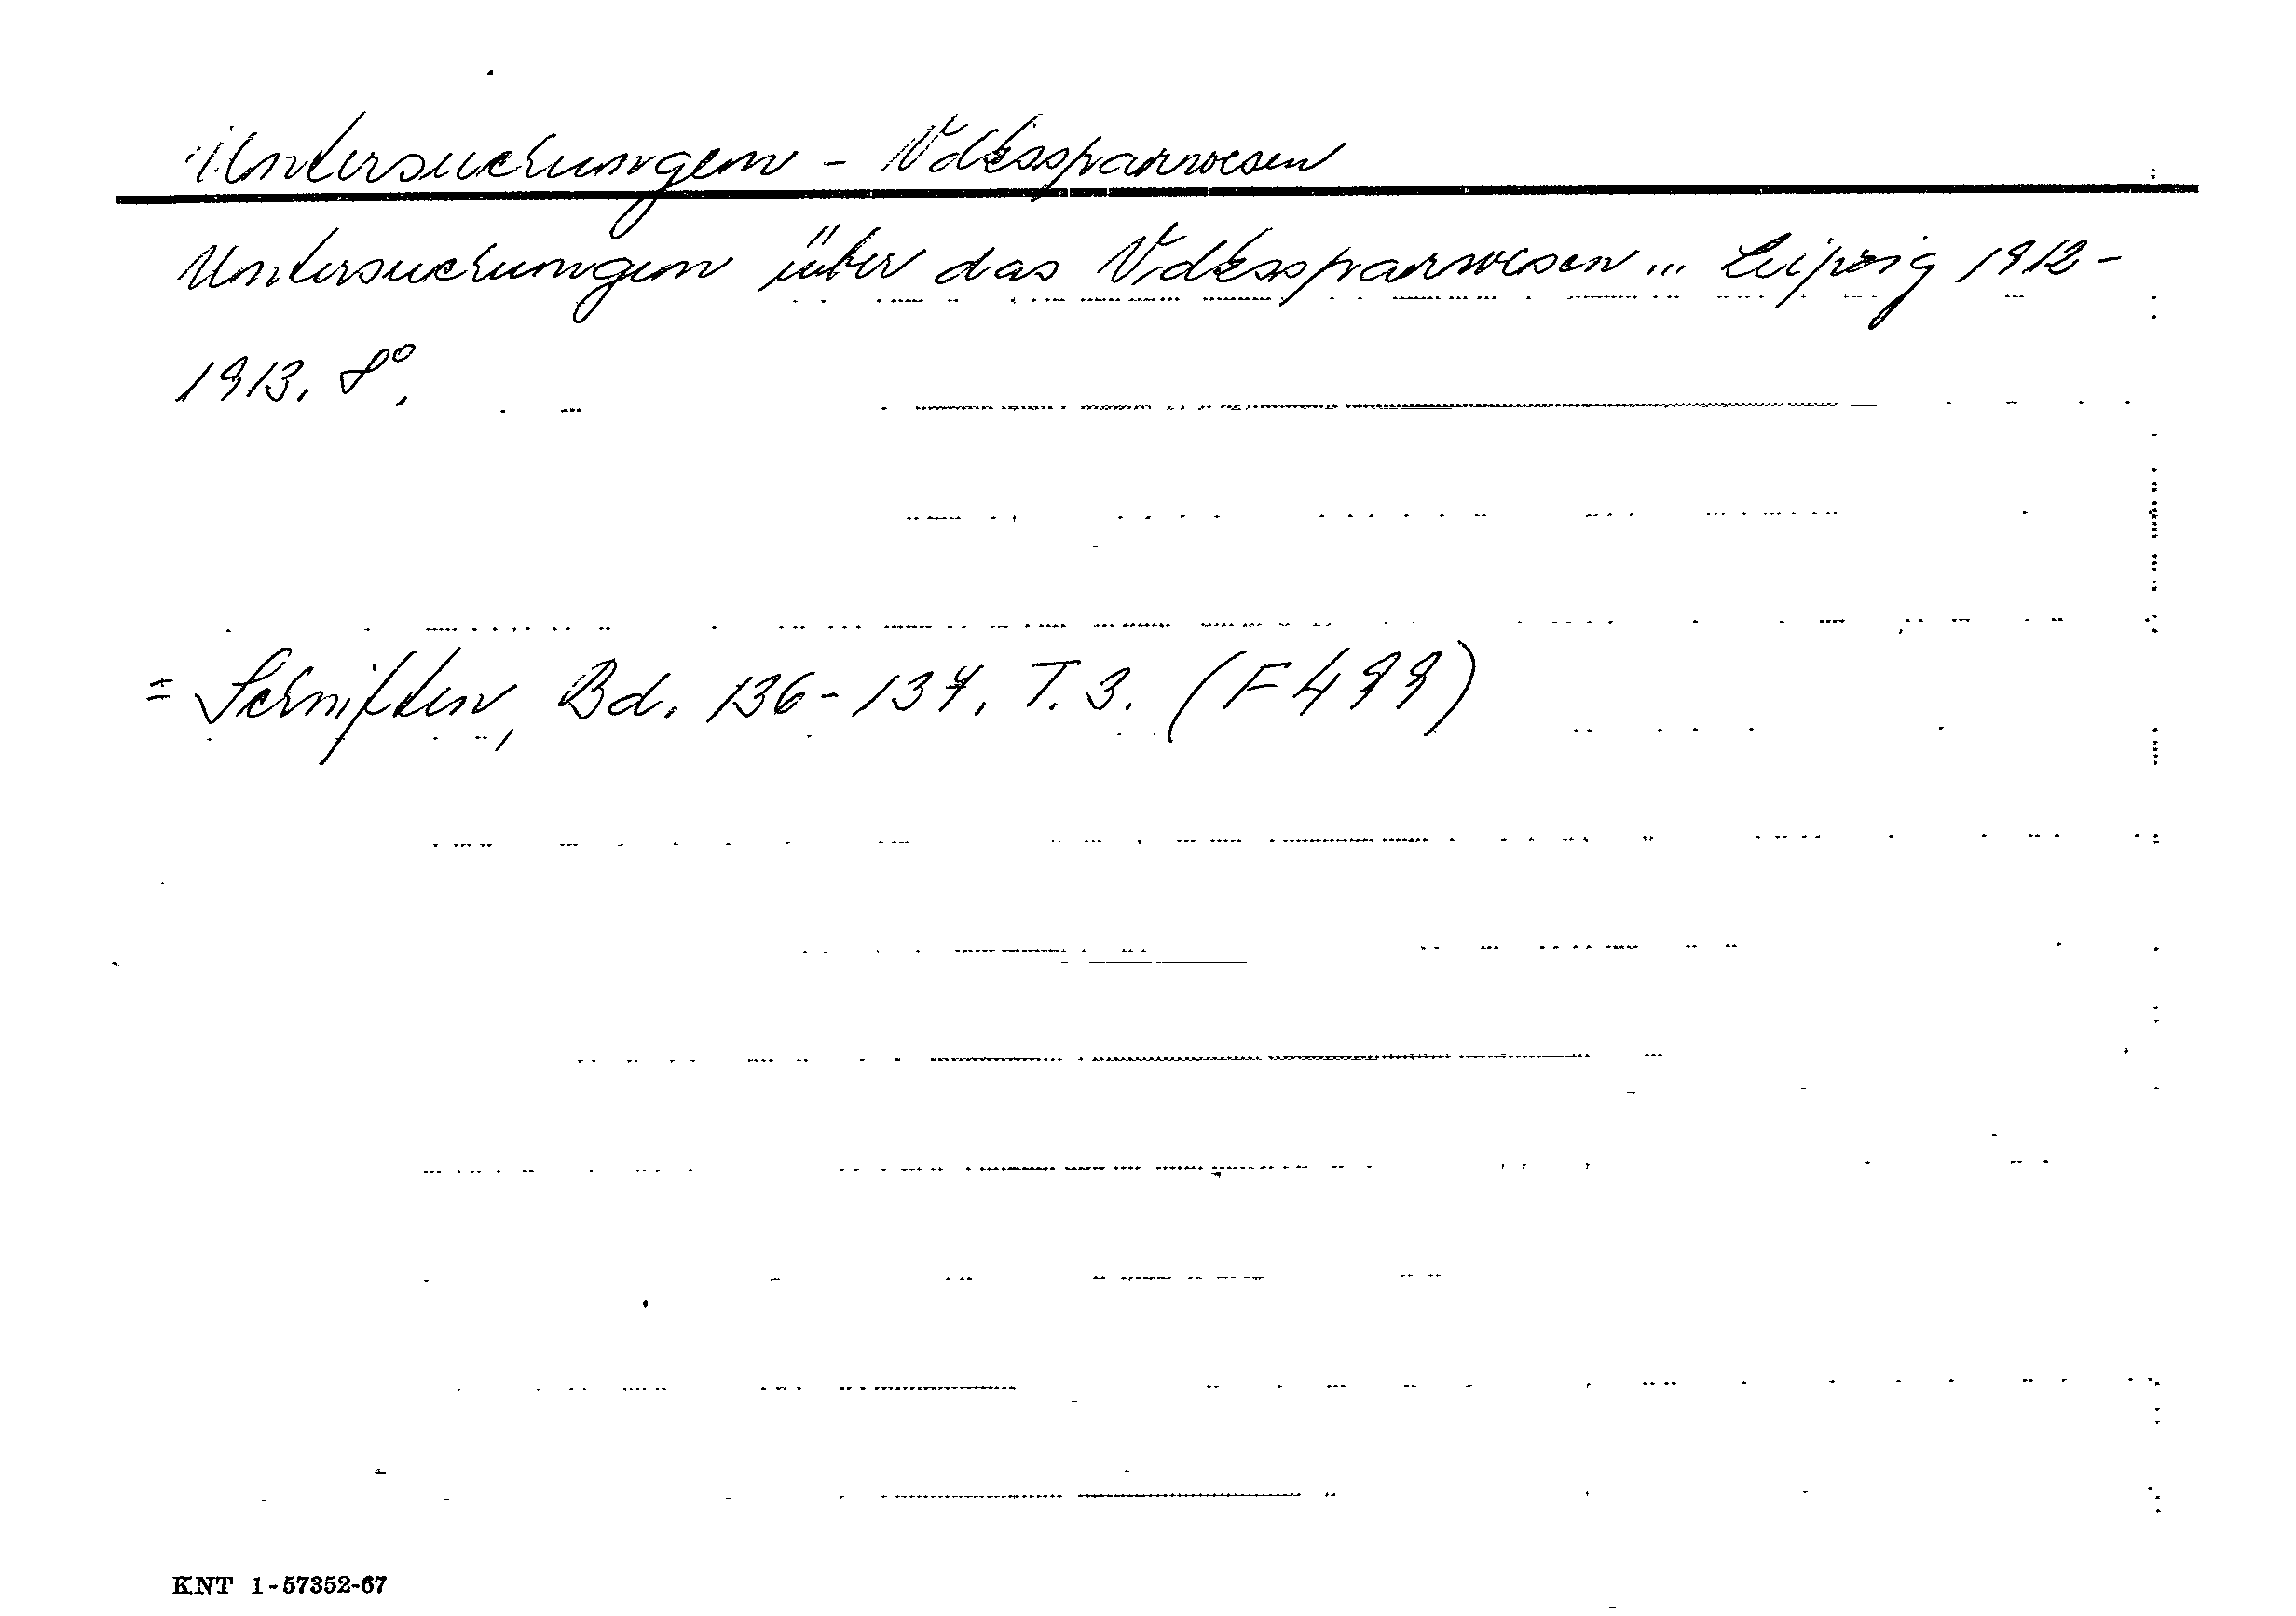 Untersuchungen - Volkssparwesen
Untersuchungen über das Volkssparwesen ... Leipzig 1912-
1913. 8°.
= Schriften, Bd. 136-137, T. 3. (F 499)
KNT 1-57352-67